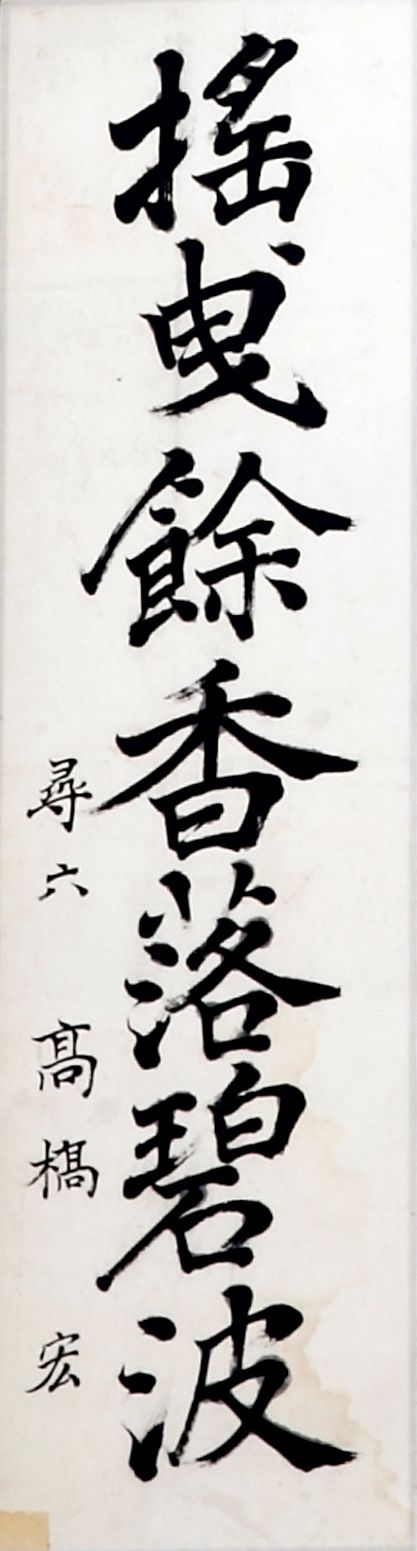 搖曳餘香落碧波
尋六 髙槗 宏